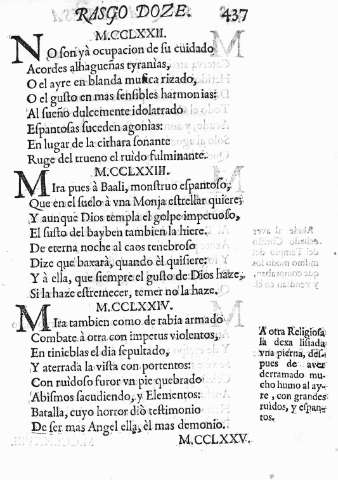 RASGO DOZE. 437
M.CCLXXII.
NO son yà ocupacion de su cuidado
Acordes alhagueñas tyranìas,
O el ayre en blanda musica rizado,
O el gusto en mas sensibles harmonias:
Al sueño dulcemente idolatrado
Espantosas suceden agonìas:
En lugar de la cithara sonante
Ruge del trueno el ruìdo fulminante.
M.CCLXXIII.
MIra pues à Baali, monstruo espantoso,
Que en el suelo à vna Monja estrellar quiere;
Y aunque Dios templa el golpe impetuoso,
El susto del bayben tambien la hiere.
De eterna noche al caos tenebroso
Dize que baxarà, quando èl quisiere:
Y à ella, que siempre el gusto de Dios haze,
Si la haze estremecer, temer no la haze.
M.CCLXXIV.
MIra tambien como de rabia armado
Combate à otra con impetus violentos,
En tinieblas el dia sepultado,
Y aterrada la vista con portentos:
Con ruìdoso furor vn pie quebrado
Abismos sacudiendo, y Elementos:
Batalla, cuyo horror diò testimonio
De ser mas Angel ella, èl mas demonio.
M.CCLXXV.
A otra Religiosa
la dexa lisiada
vna pierna, des-
pues de aver
derramado mu-
cho humo al ay-
re, con grandes
ruìdos, y espan-
tos.